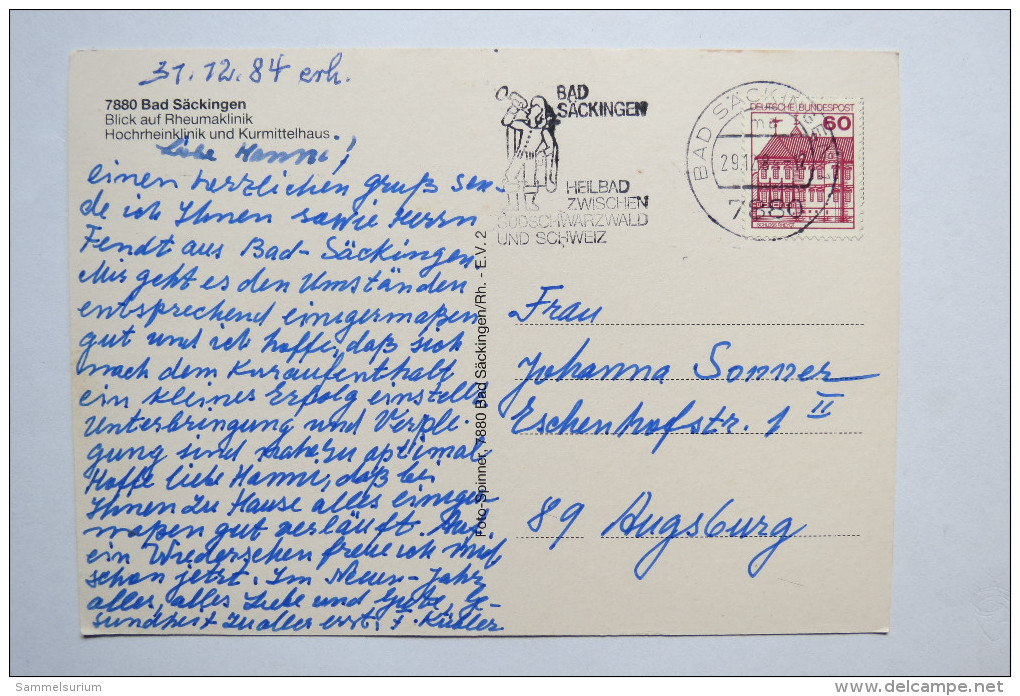 31.12.84 erh.
7880 Bad Säckingen
Blick auf Rheumaklinik
Hochrheinklinik und Kurmittelhaus
Liebe Hanni!
einen herzlichen Gruß sen-
de ich Ihnen sowie Herrn
Fendt aus Bad-Säckingen.
Mir geht es den Umständen
entsprechend einigermaßen
gut und ich hoffe, daß sich
nach dem Kuraufenthalt
ein kleines Erfolg einstellt.
Unterbringung und Verpfle-
gung sind nahezu optimal.
Hoffe liebe Hanni, daß bei
Ihnen zu Hause alles einiger-
maßen gut verläuft. Auf
ein Wiedersehen freue ich mich
schon jetzt. Im Neuen-Jahr
alles, alles Liebe und Gute, Ge-
sundheit zu aller erst.
Foto-Spinner, 7880 Bad Säckingen/Rh. - E.V. 2
BAD
SÄCKINGEN
HEILBAD
ZWISCHEN
SÜDSCHWARZWALD
UND SCHWEIZ
BAD SÄCKINGEN
7880
DEUTSCHE BUNDESPOST
60
SCHLOSS RHEYDT
Frau
Johanna Sonner
Eschenhofstr. 1 II
89 Augsburg
Sammelsurium
www.delcampe.net